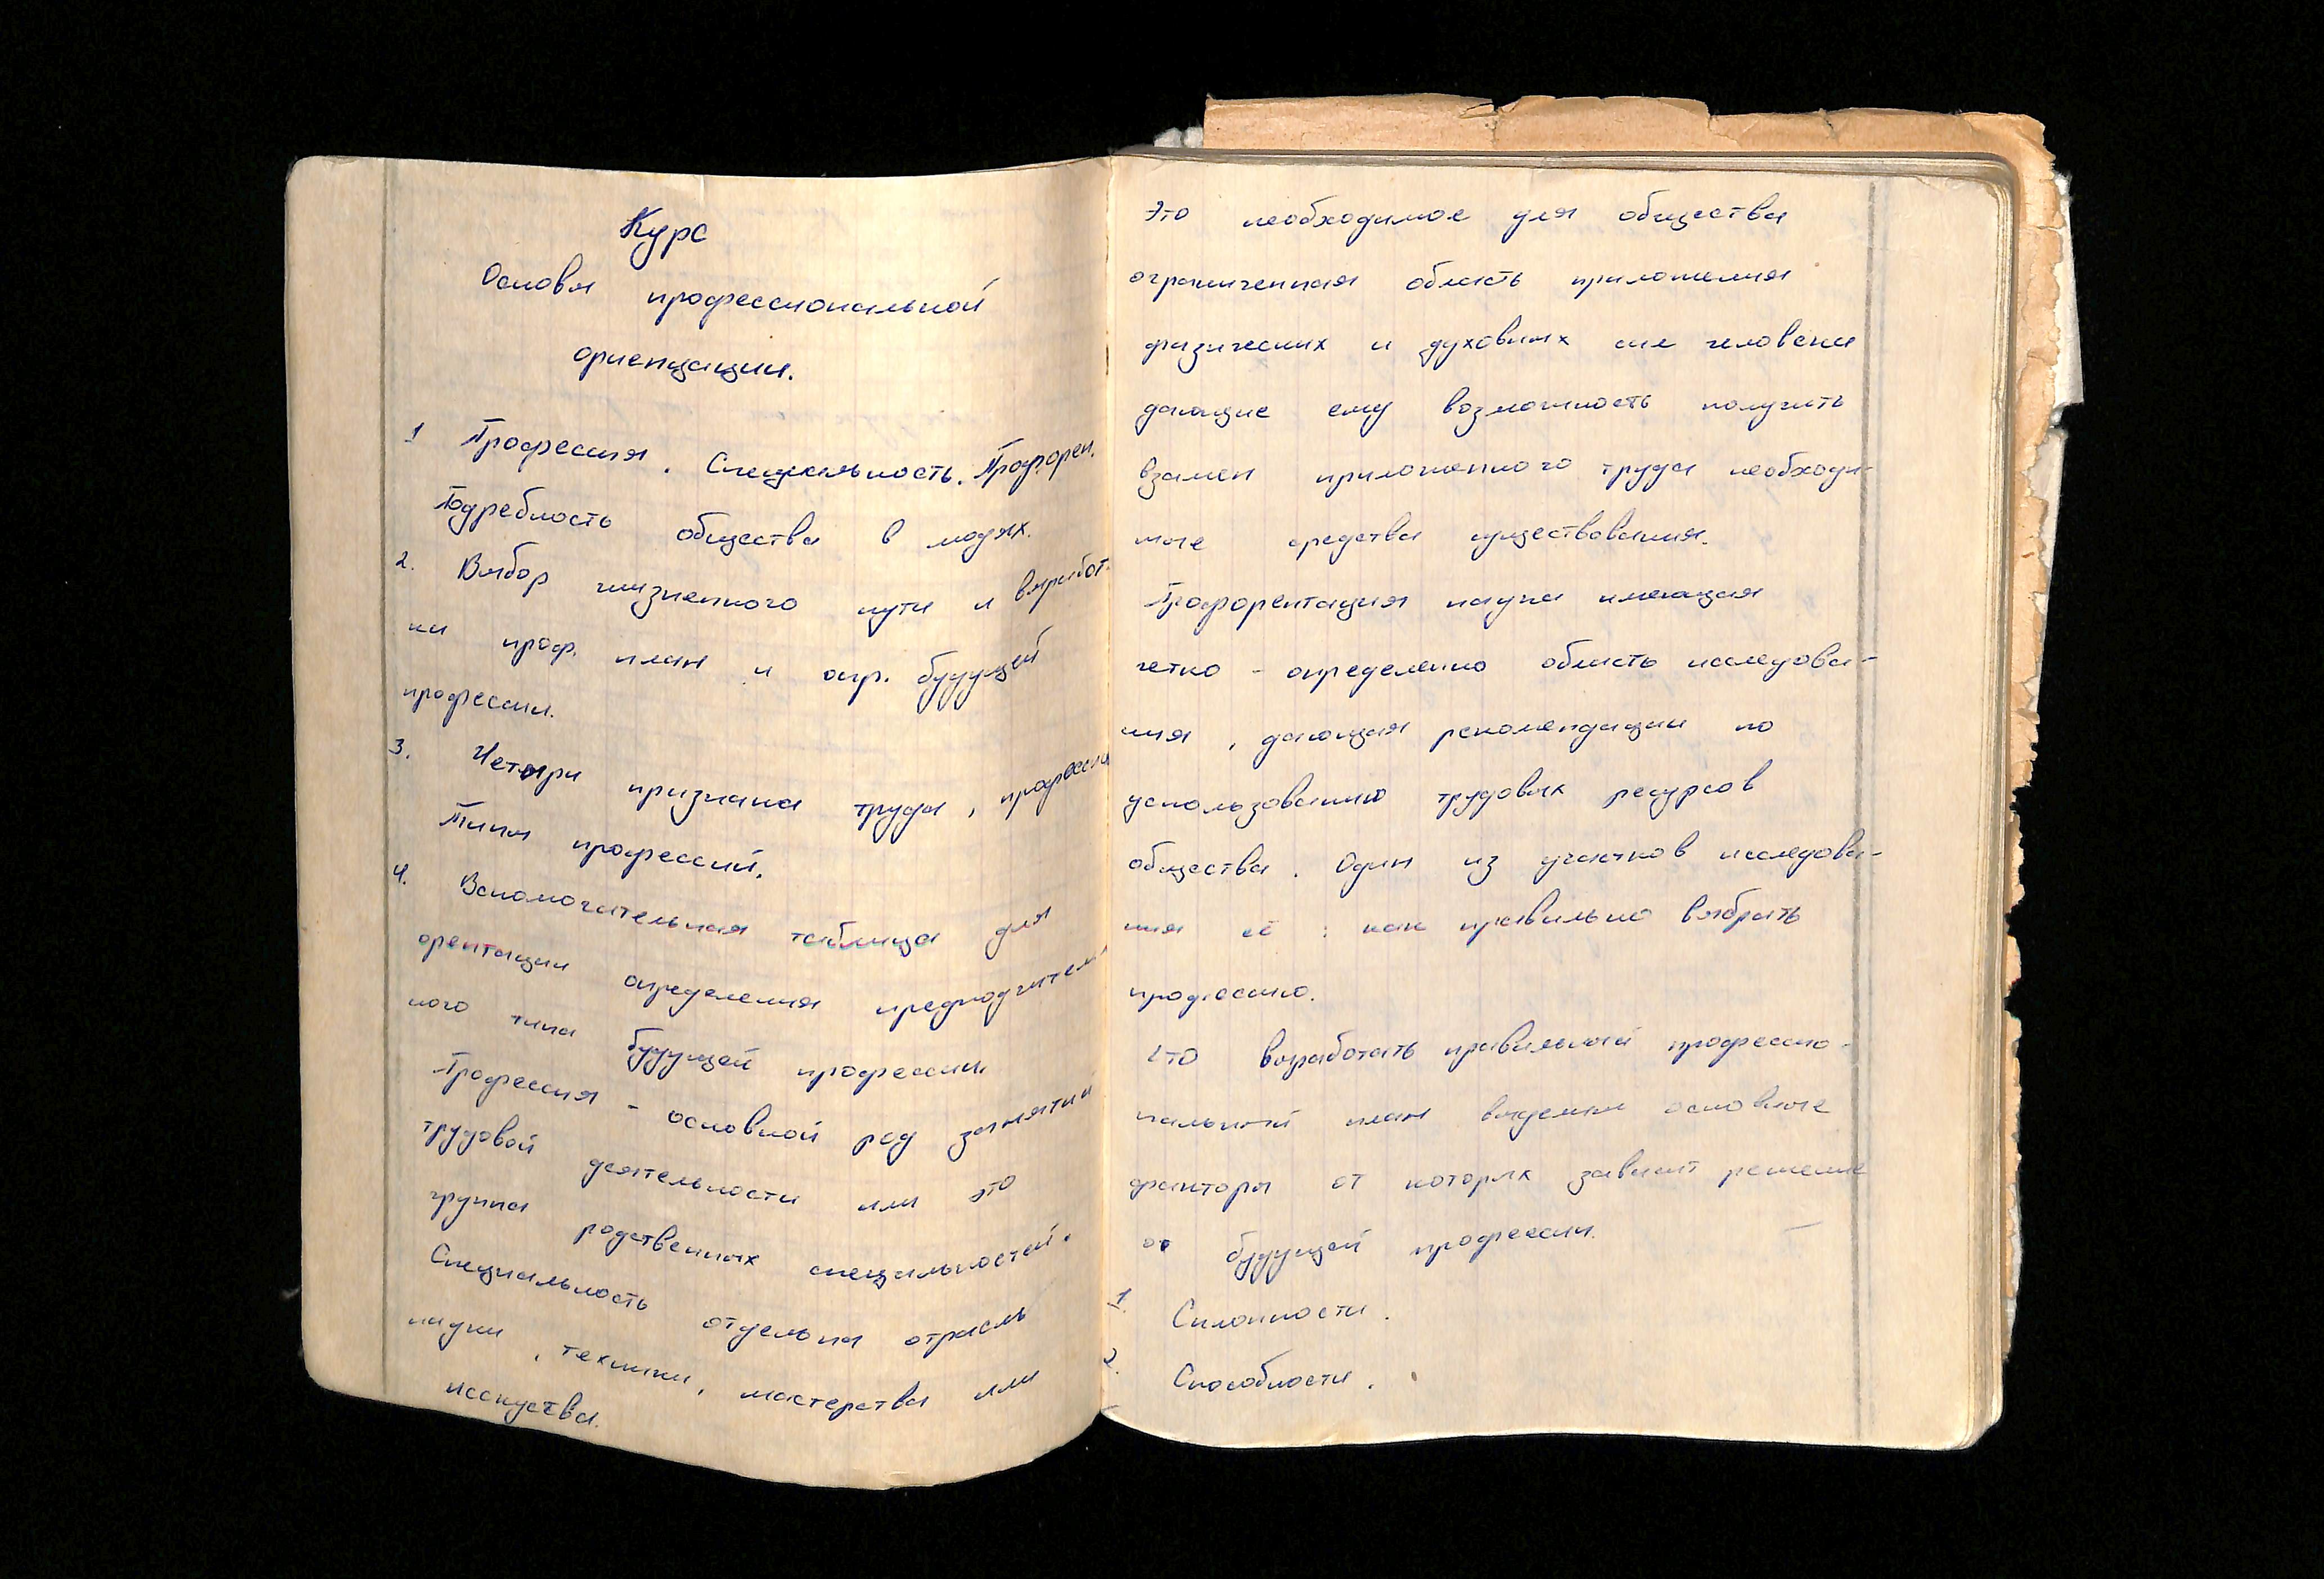 Курс
Основы профессиональной
ориенцации.
1 Профессия. Специальность. Профорен.
Подребность общества в людях.
2. Выбор жизненного пути и выработ-
ки проф. план и опр. будущей
профессии.
3. Четыри признака труда, профессии
Типы профессий.
4. Вспомогательная таблица для
орентации определения предподчител
ного типа будущей профессии
Профессия - основной род занятий
трудовой деятельности или это
группа родственных специальностей.
Специальность отдельна отрасль
науки, техники, мастерства или
исскуства.
Это необходимое для общества
ограниченная область приложения
физических и духовных сил человека
дающие ему возможность получить
взамен приложенного труда необходи-
мые средства существования.
Профорентация наука имеющая
четко - определенно область исследова-
ния, дающая рекомендации по
успользованию трудовых ресурсов
общества. Один из участков исследова-
ния её : как правильно выбрать
профессию.
выработать правильный профессио-
нальный план выделим основные
факторы от которых зависит решение
о будущей профессии.
1. Склонности.
2. Способности.